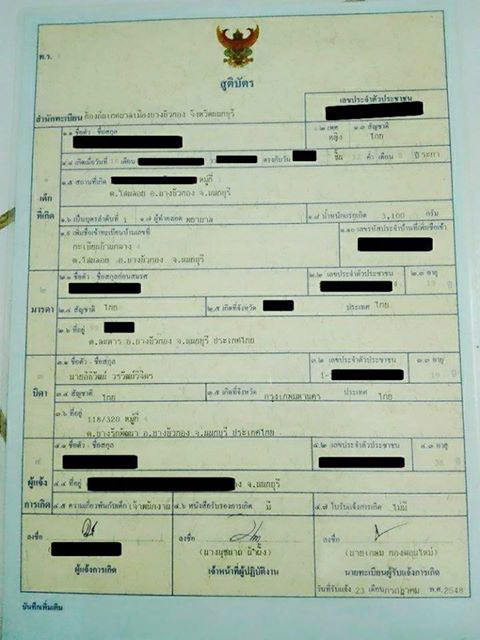 ท.ร.
สูติบัตร
เลขประจำตัวประชาชน
สำนักทะเบียน ท้องถิ่นเทศบาลเมืองบางบัวทอง จังหวัดนนทบุรี
๑.๑ ชื่อตัว - ชื่อสกุล
๑.๒ เพศ
หญิง
๑.๓ สัญชาติ
ไทย
๑.๔ เกิดเมื่อวันที่ เดือน ตรงกับวัน ค่ำ เดือน ปี ระกา
เด็กที่เกิด
๑.๕ สถานที่เกิด หมู่ที่
ต.โสนลอย อ.บางบัวทอง จ.นนทบุรี
๑.๖ เป็นบุตรลำดับที่ 1 ๑.๗ ผู้ทำคลอด พยาบาล
๑.๘ น้ำหนักแรกเกิด 3,100 กรัม
๑.๙ เพิ่มชื่อเข้าทะเบียนบ้านเลขที่
ทะเบียนบ้านกลาง
ต.โสนลอย อ.บางบัวทอง จ.นนทบุรี
๑.๑๐ เลขรหัสประจำบ้านที่เพิ่มชื่อเข้า
๒
มารดา
๒.๑ ชื่อตัว - ชื่อสกุลก่อนสมรส
๒.๒ เลขประจำตัวประชาชน
๒.๓ อายุ
ปี
๒.๔ สัญชาติ ไทย
๒.๕ เกิดที่จังหวัด ประเทศ ไทย
๒.๖ ที่อยู่
อ.บางบัวทอง จ.นนทบุรี ประเทศไทย
๓
บิดา
๓.๑ ชื่อตัว - ชื่อสกุล
๓.๒ เลขประจำตัวประชาชน
1-
๓.๓ อายุ
ปี
๓.๔ สัญชาติ ไทย
๓.๕ เกิดที่จังหวัด กรุงเทพมหานคร ประเทศ ไทย
๓.๖ ที่อยู่
118/320 หมู่ที่
ต.บางรักพัฒนา อ.บางบัวทอง จ.นนทบุรี ประเทศไทย
๔
ผู้แจ้งการเกิด
๔.๑ ชื่อตัว - ชื่อสกุล
๔.๒ เลขประจำตัวประชาชน
๔.๓ อายุ
ปี
๔.๔ ที่อยู่ จ.นนทบุรี
๔.๕ ความเกี่ยวพันกับเด็ก เจ้าพนักงาน
๔.๖ หนังสือรับรองการเกิด มี
๔.๗ ใบรับแจ้งการเกิด ไม่มี
ลงชื่อ
ผู้แจ้งการเกิด
ลงชื่อ
เจ้าหน้าที่ผู้ปฏิบัติงาน
ลงชื่อ
นายทะเบียนผู้รับแจ้งการเกิด
วันที่รับแจ้ง 23 เดือน กรกฎาคม พ.ศ. 2548
บันทึกเพิ่มเติม